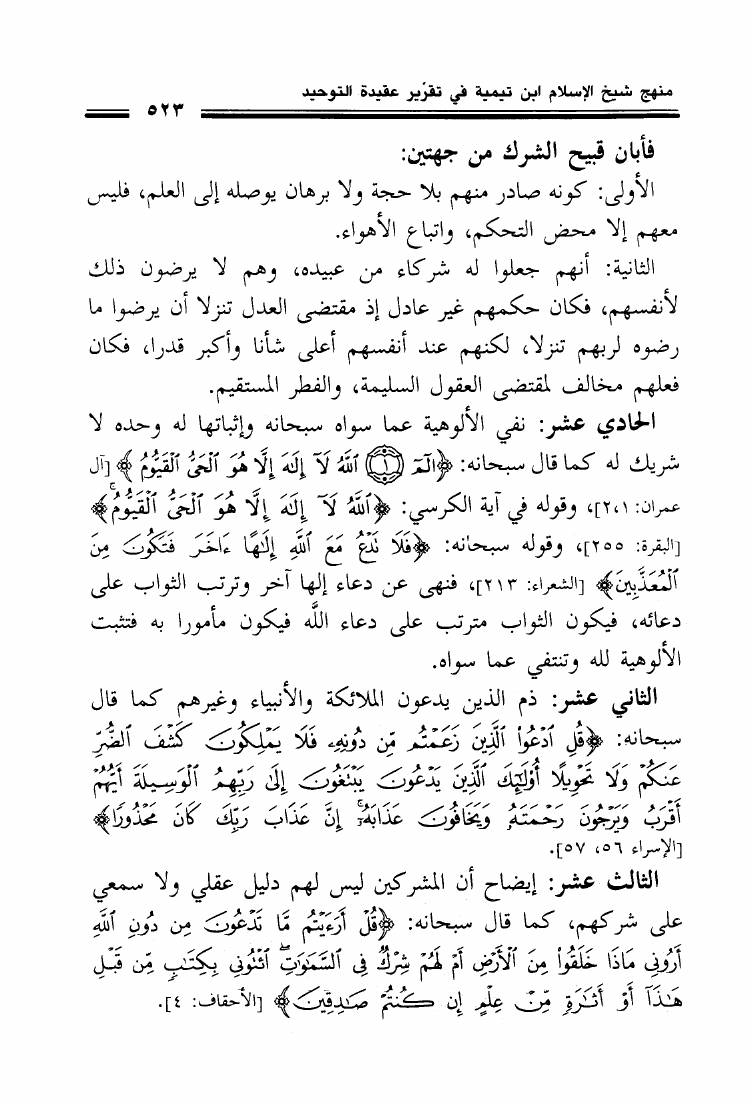 منهج شيخ الإسلام ابن تيمية في تقرير عقيدة التوحيد
٥٢٣
فأبان قبيح الشرك من جهتين:
الأولى: كونه صادر منهم بلا حجة ولا برهان يوصله إلى العلم، فليس
معهم إلا محض التحكم، واتباع الأهواء.
الثانية: أنهم جعلوا له شركاء من عبيده، وهم لا يرضون ذلك
لأنفسهم، فكان حكمهم غير عادل إذ مقتضى العدل تنزلا أن يرضوا ما
رضوه لربهم تنزلا، لكنهم عند أنفسهم أعلى شأنا وأكبر قدرا، فكان
فعلهم مخالف لمقتضى العقول السليمة، والفطر المستقيم.
الحادي عشر: نفي الألوهية عما سواه سبحانه وإثباتها له وحده لا
شريك له كما قال سبحانه: ﴿الٓمٓ ۝١ ٱللَّهُ لَآ إِلَٰهَ إِلَّا هُوَ ٱلْحَىُّ ٱلْقَيُّومُ﴾ [آل
عمران: ١، ٢]، وقوله في آية الكرسي: ﴿ٱللَّهُ لَآ إِلَٰهَ إِلَّا هُوَ ٱلْحَىُّ ٱلْقَيُّومُ ۚ﴾
[البقرة: ٢٥٥]، وقوله سبحانه: ﴿فَلَا تَدْعُ مَعَ ٱللَّهِ إِلَٰهًا ءَاخَرَ فَتَكُونَ مِنَ
ٱلْمُعَذَّبِينَ﴾ [الشعراء: ٢١٣]، فنهى عن دعاء إلها آخر وترتب الثواب على
دعائه، فيكون الثواب مترتب على دعاء اللَّه فيكون مأمورا به فتثبت
الألوهية لله وتنتفي عما سواه.
الثاني عشر: ذم الذين يدعون الملائكة والأنبياء وغيرهم كما قال
سبحانه: ﴿قُلِ ٱدْعُوا۟ ٱلَّذِينَ زَعَمْتُم مِّن دُونِهِۦ فَلَا يَمْلِكُونَ كَشْفَ ٱلضُّرِّ
عَنكُمْ وَلَا تَحْوِيلًا أُو۟لَٰٓئِكَ ٱلَّذِينَ يَدْعُونَ يَبْتَغُونَ إِلَىٰ رَبِّهِمُ ٱلْوَسِيلَةَ أَيُّهُمْ
أَقْرَبُ وَيَرْجُونَ رَحْمَتَهُۥ وَيَخَافُونَ عَذَابَهُۥٓ ۚ إِنَّ عَذَابَ رَبِّكَ كَانَ مَحْذُورًا﴾
[الإسراء ٥٦، ٥٧].
الثالث عشر: إيضاح أن المشركين ليس لهم دليل عقلي ولا سمعي
على شركهم، كما قال سبحانه: ﴿قُلْ أَرَءَيْتُم مَّا تَدْعُونَ مِن دُونِ ٱللَّهِ
أَرُونِى مَاذَا خَلَقُوا۟ مِنَ ٱلْأَرْضِ أَمْ لَهُمْ شِرْكٌ فِى ٱلسَّمَٰوَٰتِ ۖ ٱئْتُونِى بِكِتَٰبٍ مِّن قَبْلِ
هَٰذَآ أَوْ أَثَٰرَةٍ مِّنْ عِلْمٍ إِن كُنتُمْ صَٰدِقِينَ﴾ [الأحقاف: ٤].